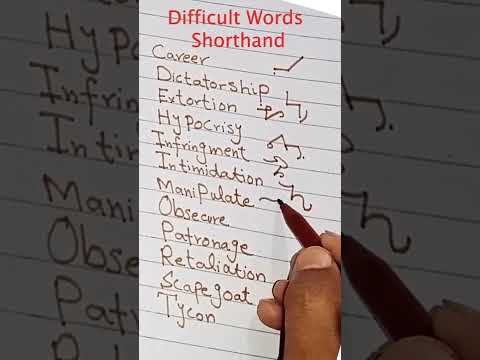 Difficult Words
Shorthand
Career
Dictatorship
Extortion
Hypocrisy
Infringment
Intimidation
Manipulate
Obsecure
Patronage
Retaliation
Scapegoat
Tycon